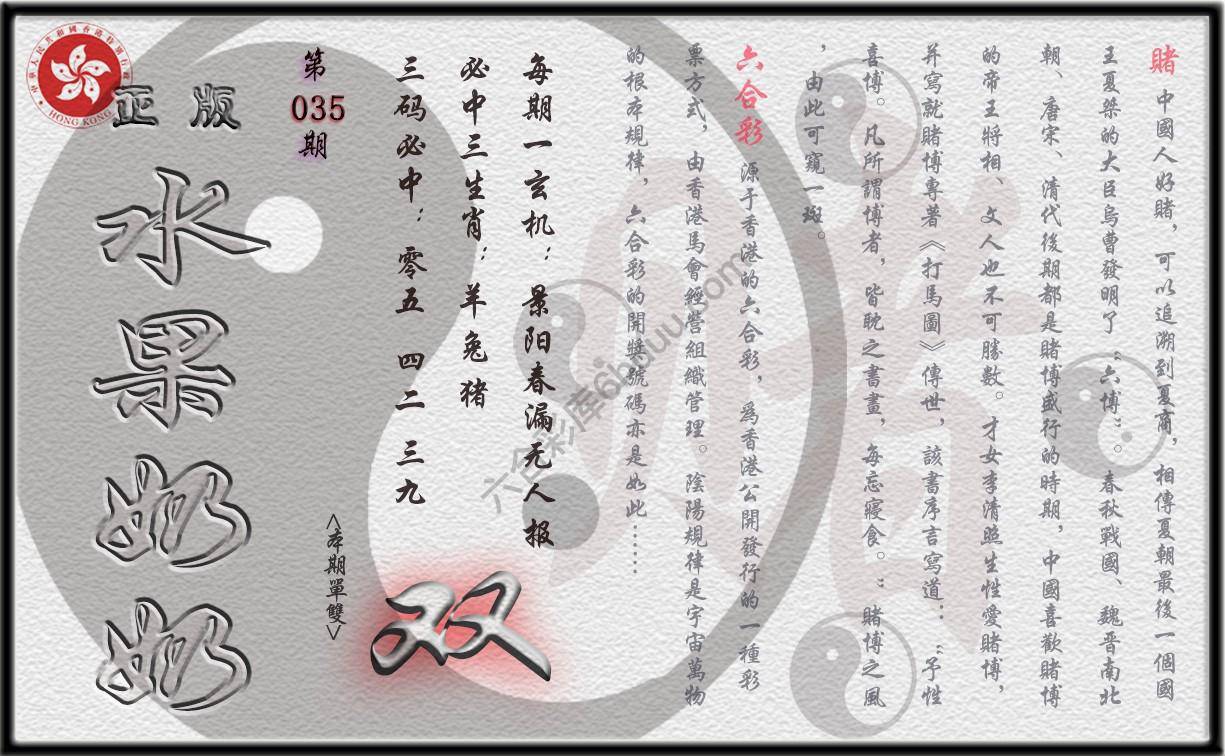 賭 中國人好賭，可以追溯到夏商，相傳夏朝最後一個國
王夏桀的大臣烏曹發明了“六博”。春秋戰國、魏晋南北
朝、唐宋、清代後期都是賭博盛行的時期，中國喜歡賭博
的帝王將相、文人也不可勝數。才女李清照生性愛賭博，
并寫就賭博專著《打馬圖》傳世，該書序言寫道：“予性
喜博。凡所謂博者，皆耽之書畫，每忘寢食。”賭博之風
，由此可窺一斑。
六合彩 源于香港的六合彩，爲香港公開發行的一種彩
票方式，由香港馬會經營組織管理。陰陽規律是宇宙萬物
的根本規律，六合彩的開獎號碼亦是如此……
每期一玄机：景阳春漏无人报
必中三生肖：羊兔猪
三码必中：零五 四二 三九
<本期單雙>
双
第
035
期
正版
水果奶奶
中華人民共和國香港特別行政區
HONG KONG
六合彩库6huuu.com